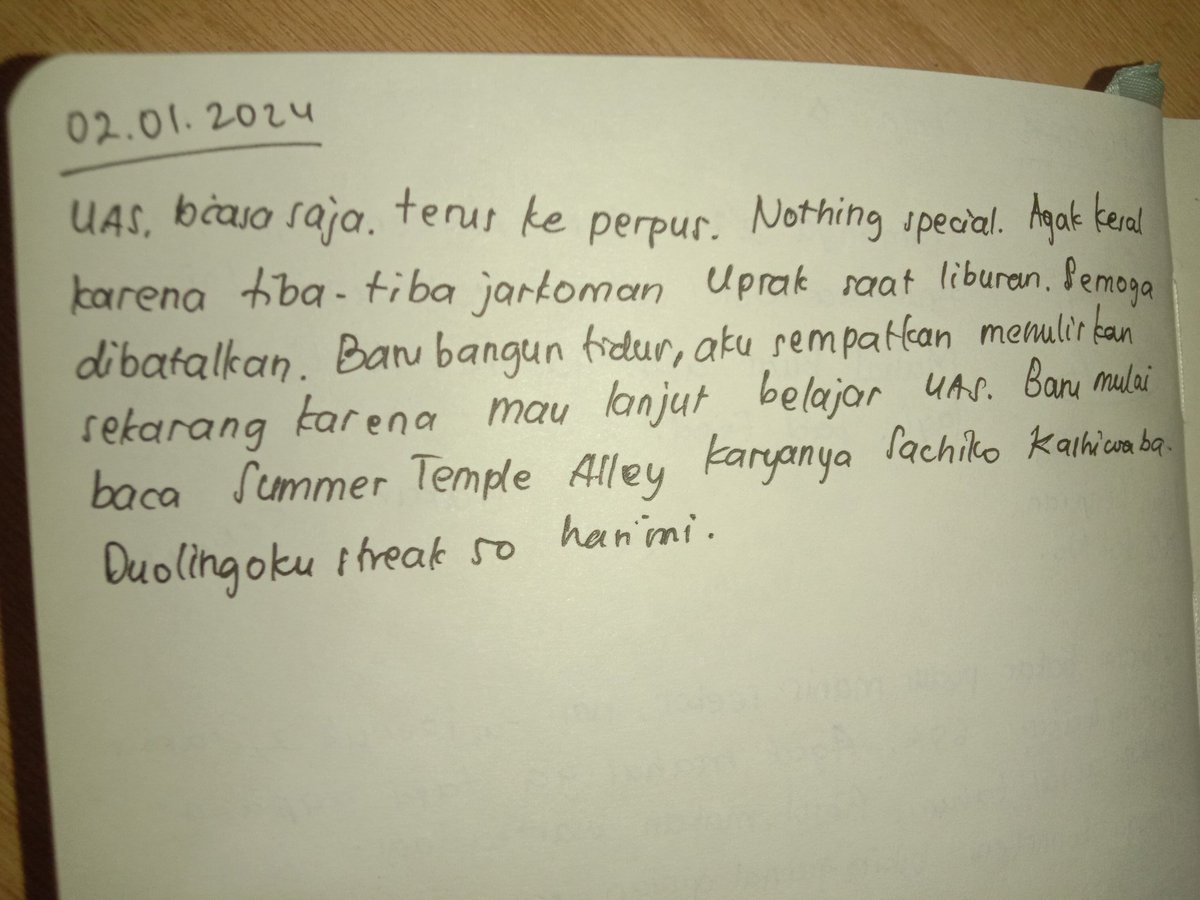 02.01.2024
UAS. biasa saja. terus ke perpus. Nothing special. Agak kesal
karena tiba-tiba jarkoman Uprak saat liburan. Semoga
dibatalkan. Baru bangun tidur, aku sempatkan menuliskan
sekarang karena mau lanjut belajar UAS. Baru mulai
baca Summer Temple Alley karyanya Sachiko Kashiwaba.
Duolingoku streak 50 hari ini.